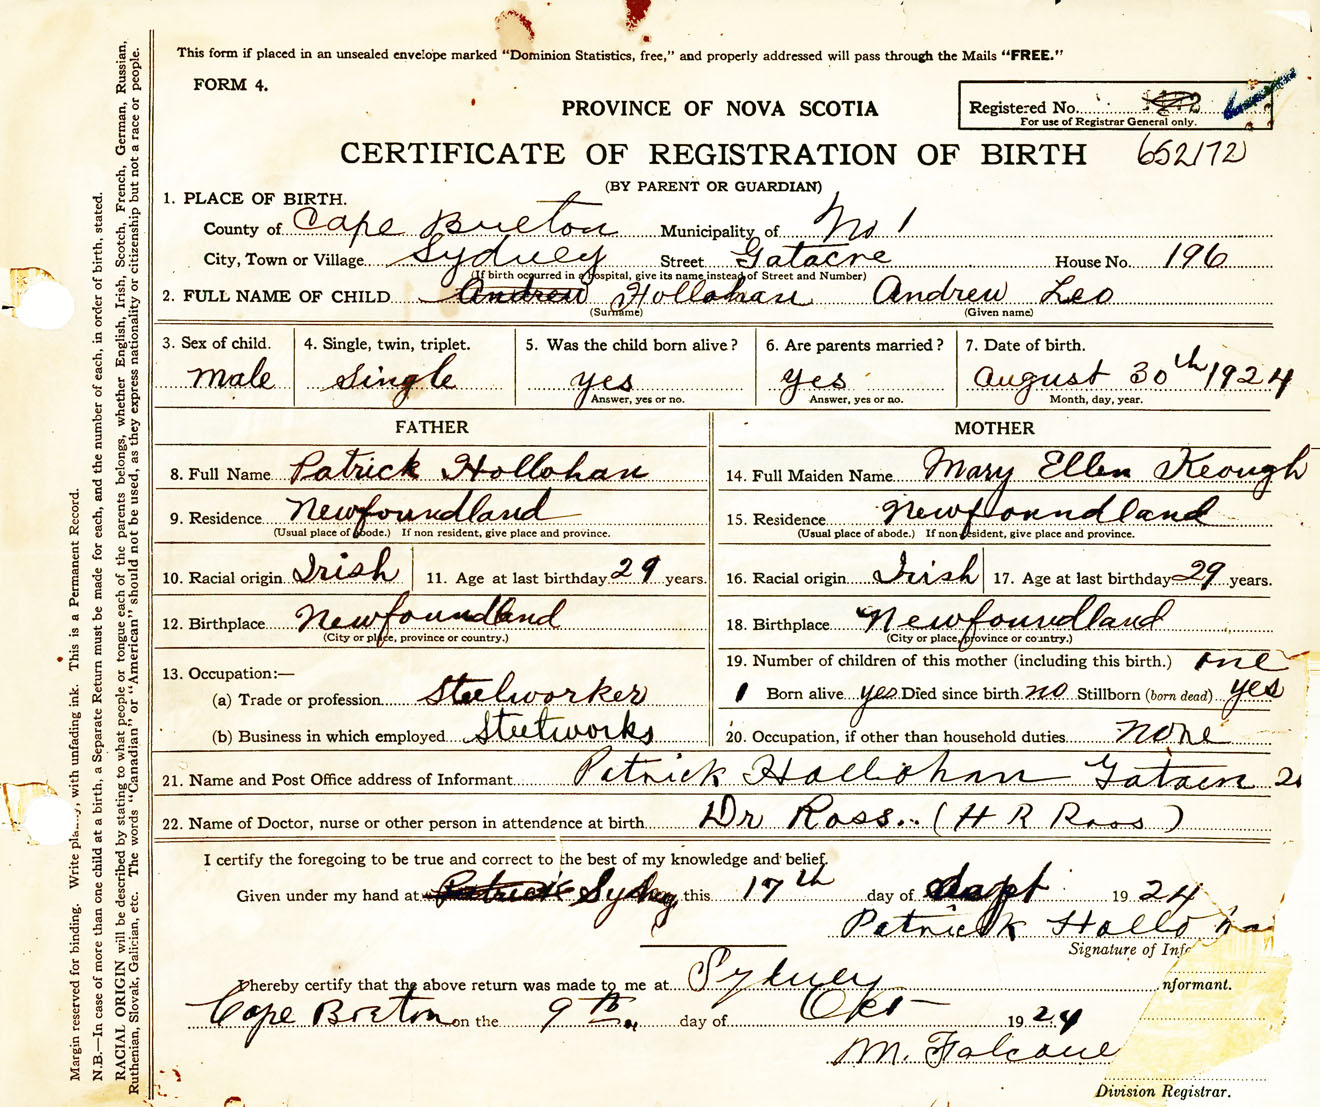 This form if placed in an unsealed envelope marked "Dominion Statistics, free," and properly addressed will pass through the Mails "FREE."
FORM 4.
PROVINCE OF NOVA SCOTIA
Registered No.
For use of Registrar General only.
CERTIFICATE OF REGISTRATION OF BIRTH 652172
(BY PARENT OR GUARDIAN)
1. PLACE OF BIRTH.
County of Cape Breton Municipality of No 1
City, Town or Village Sydney Street Gatacre House No. 196
(If birth occurred in a hospital, give its name instead of Street and Number)
2. FULL NAME OF CHILD Andrew Hollohan Andrew Leo
(Surname) (Given name)
3. Sex of child. 4. Single, twin, triplet. 5. Was the child born alive? 6. Are parents married? 7. Date of birth.
Male Single yes yes August 30th 1924
Answer, yes or no. Answer, yes or no. Month, day, year.
FATHER MOTHER
8. Full Name Patrick Hollohan 14. Full Maiden Name Mary Ellen Keough
9. Residence Newfoundland 15. Residence Newfoundland
(Usual place of abode.) If non resident, give place and province. (Usual place of abode.) If non resident, give place and province.
10. Racial origin Irish 11. Age at last birthday 29 years. 16. Racial origin Irish 17. Age at last birthday 29 years.
12. Birthplace Newfoundland 18. Birthplace Newfoundland
(City or place, province or country.) (City or place, province or country.)
13. Occupation:— 19. Number of children of this mother (including this birth.) one
(a) Trade or profession Steelworker 1 Born alive yes Died since birth no Stillborn (born dead) yes
(b) Business in which employed Steelworks 20. Occupation, if other than household duties none
21. Name and Post Office address of Informant Patrick Hollohan
22. Name of Doctor, nurse or other person in attendance at birth Dr Ross.. (H R Ross)
I certify the foregoing to be true and correct to the best of my knowledge and belief.
Given under my hand at Patrick Sydney this 17th day of Sept 1924
Patrick Hollohan
Signature of Info
nformant.
I hereby certify that the above return was made to me at Sydney
Cape Breton on the 9th. day of Oct 1924
M. Falcone
Division Registrar.
Margin reserved for binding. Write plainly, with unfading ink. This is a Permanent Record.
N.B.—In case of more than one child at a birth, a Separate Return must be made for each, and the number of each, in order of birth, stated.
RACIAL ORIGIN will be described by stating to what people or tongue each of the parents belongs, whether English, Irish, Scotch, French, German, Russian,
Ruthenian, Slovak, Galician, etc. The words "Canadian" or "American" should not be used, as they express nationality or citizenship but not a race or people.